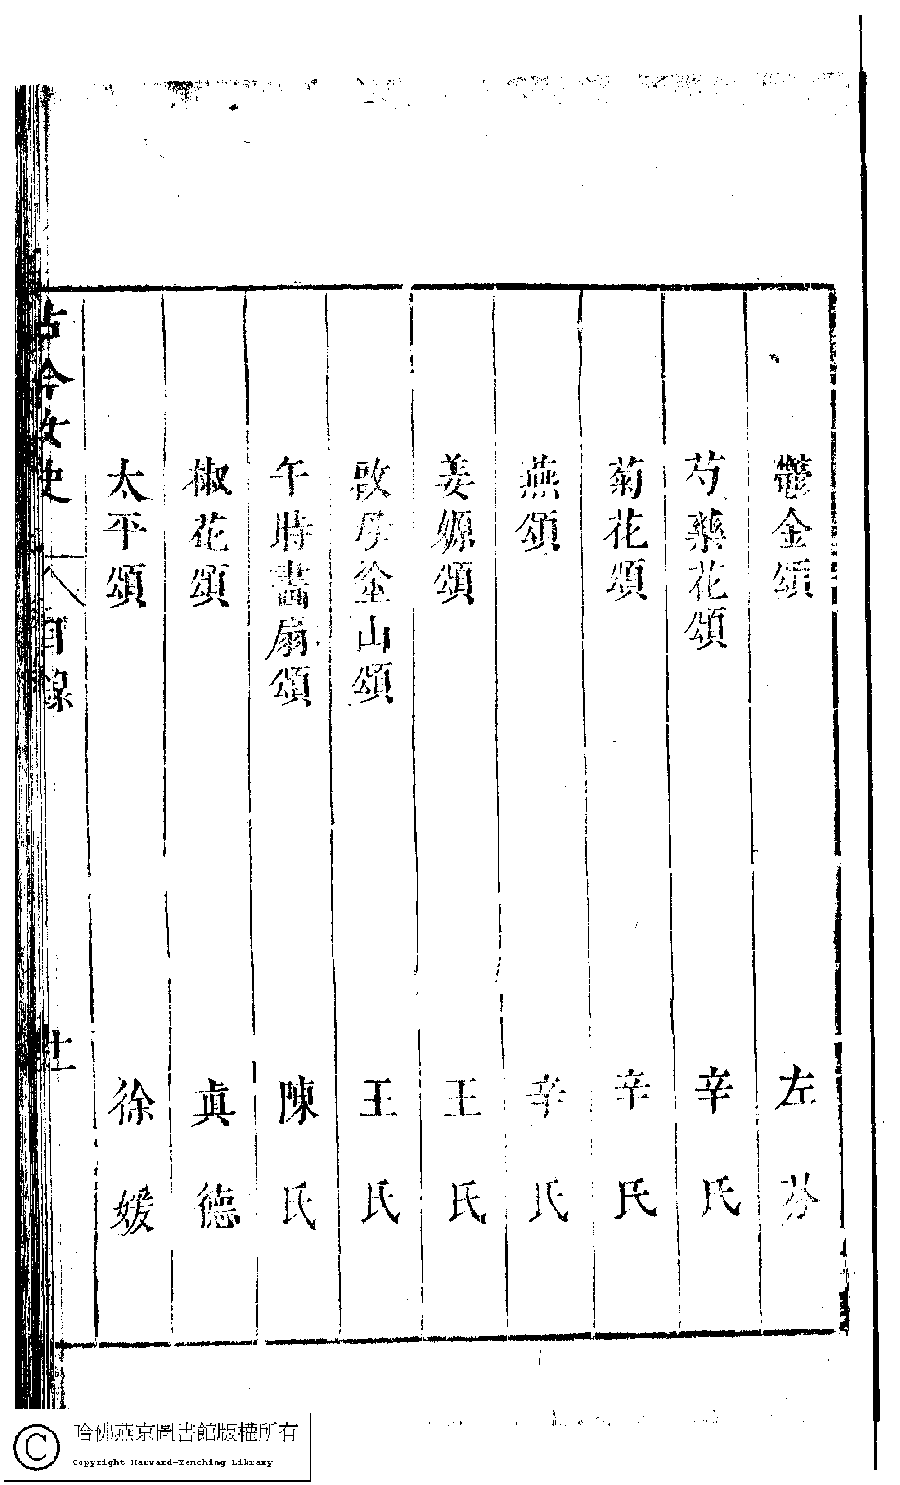 鬱金頌 左芬
芍藥花頌 辛氏
菊花頌 辛氏
燕頌 辛氏
姜嫄頌 王氏
啟母塗山頌 王氏
午時畫扇頌 陳氏
椒花頌 真德
太平頌 徐媛
古今女史 目錄
哈佛燕京圖書館版權所有
Copyright Harvard-Yenching Library